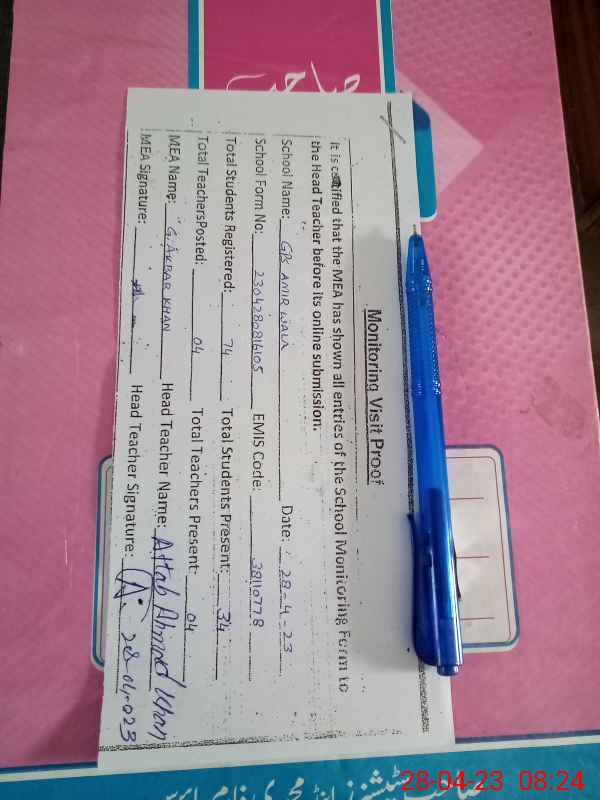 صاحب
Monitoring Visit Proof
It is certified that the MEA has shown all entries of the School Monitoring Form to
the Head Teacher before its online submission.
School Name: GPS AMIR WALA Date: 28-4-23
School Form No: 2304280816105 EMIS Code: 38110778
Total Students Registered: 74 Total Students Present: 34
Total TeachersPosted: 04 Total Teachers Present: 04
MEA Name: G. AKBAR KHAN Head Teacher Name: Aftab Ahmad Khan
MEA Signature: Head Teacher Signature: 28-04-023
28-04-23 08:24